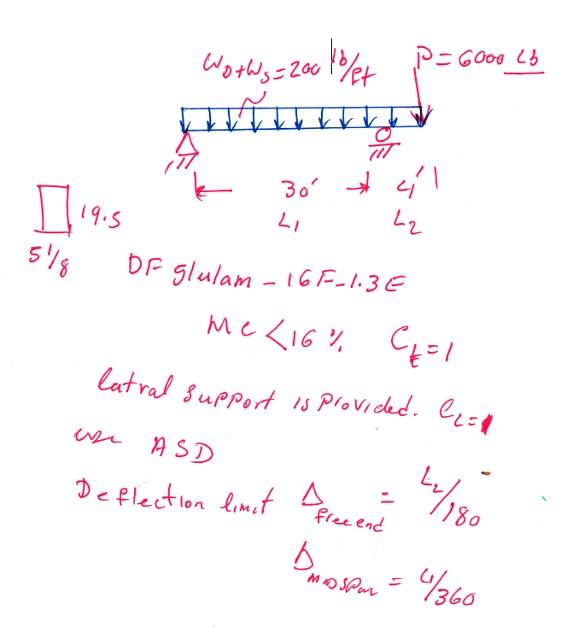 W_D+W_S=200 lb/ft
P=6000 Lb
30' 4'
L1 L2
19.5
5 1/8
DF glulam - 16F-1.3E
MC<16% C_t=1
latral support is provided. C_L=1
use ASD
Deflection limit Δ free end = L2/180
Δ midspan = L1/360